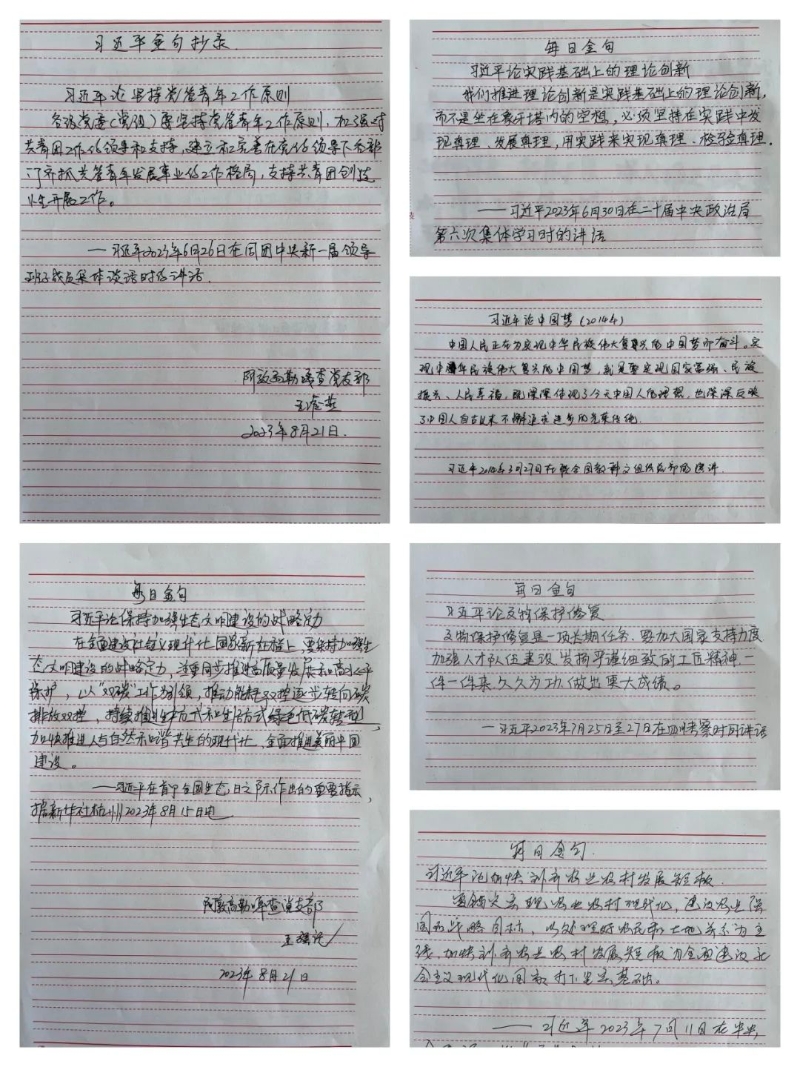 习近平金句抄录
习近平论坚持党管青年工作原则
各级党委(党组)要坚持党管青年工作原则,加强对
共青团工作的领导和支持,建立和完善在党的领导下各部
门齐抓共管青年发展事业的工作格局,支持共青团创造
性开展工作。
——习近平2023年6月26日在同团中央新一届领导
班子成员集体谈话时的讲话
2023年8月21日
每日金句
习近平论实践基础上的理论创新
我们推进理论创新是实践基础上的理论创新,
而不是坐在象牙塔内的空想,必须坚持在实践中发
现真理、发展真理,用实践来实现真理、检验真理。
——习近平2023年6月30日在二十届中央政治局
第六次集体学习时的讲话
习近平论中国梦(2014年)
中国人民正在为实现中华民族伟大复兴的中国梦而奋斗。实
现中华民族伟大复兴的中国梦,就是要实现国家富强、民族
振兴、人民幸福,既深深体现了今天中国人的理想,也深深反映
了中国人自古以来不懈追求进步的光荣传统。
习近平2014年3月27日在联合国教科文组织总部的演讲
每日金句
习近平论保持加强生态文明建设的战略定力
在全面建设社会主义现代化国家新征程上,要保持加强生
态文明建设的战略定力,注重同步推进高质量发展和高水平
保护,以“双碳”工作为引领,推动能耗双控逐步转向碳
排放双控,持续推进生产方式和生活方式绿色低碳转型,
加快推进人与自然和谐共生的现代化,全面推进美丽中国
建设。
——习近平在首个全国生态日之际作出的重要指示,
据新华社杭州2023年8月15日电
2023年8月21日
每日金句
习近平论文物保护修复
文物保护修复是一项长期任务,要加大国家支持力度
加强人才队伍建设,发扬严谨细致的工匠精神,一
件一件来,久久为功,做出更大成绩。
——习近平2023年7月25日至27日在四川考察时的讲话
每日金句
习近平论加快补齐农业农村发展短板
要锚定实现农业农村现代化、建设农业强
国的战略目标,以处理好农民和土地关系为主
线,加快补齐农业农村发展短板,为全面建设社
会主义现代化国家打下坚实基础。
——习近平2023年7月11日在中央